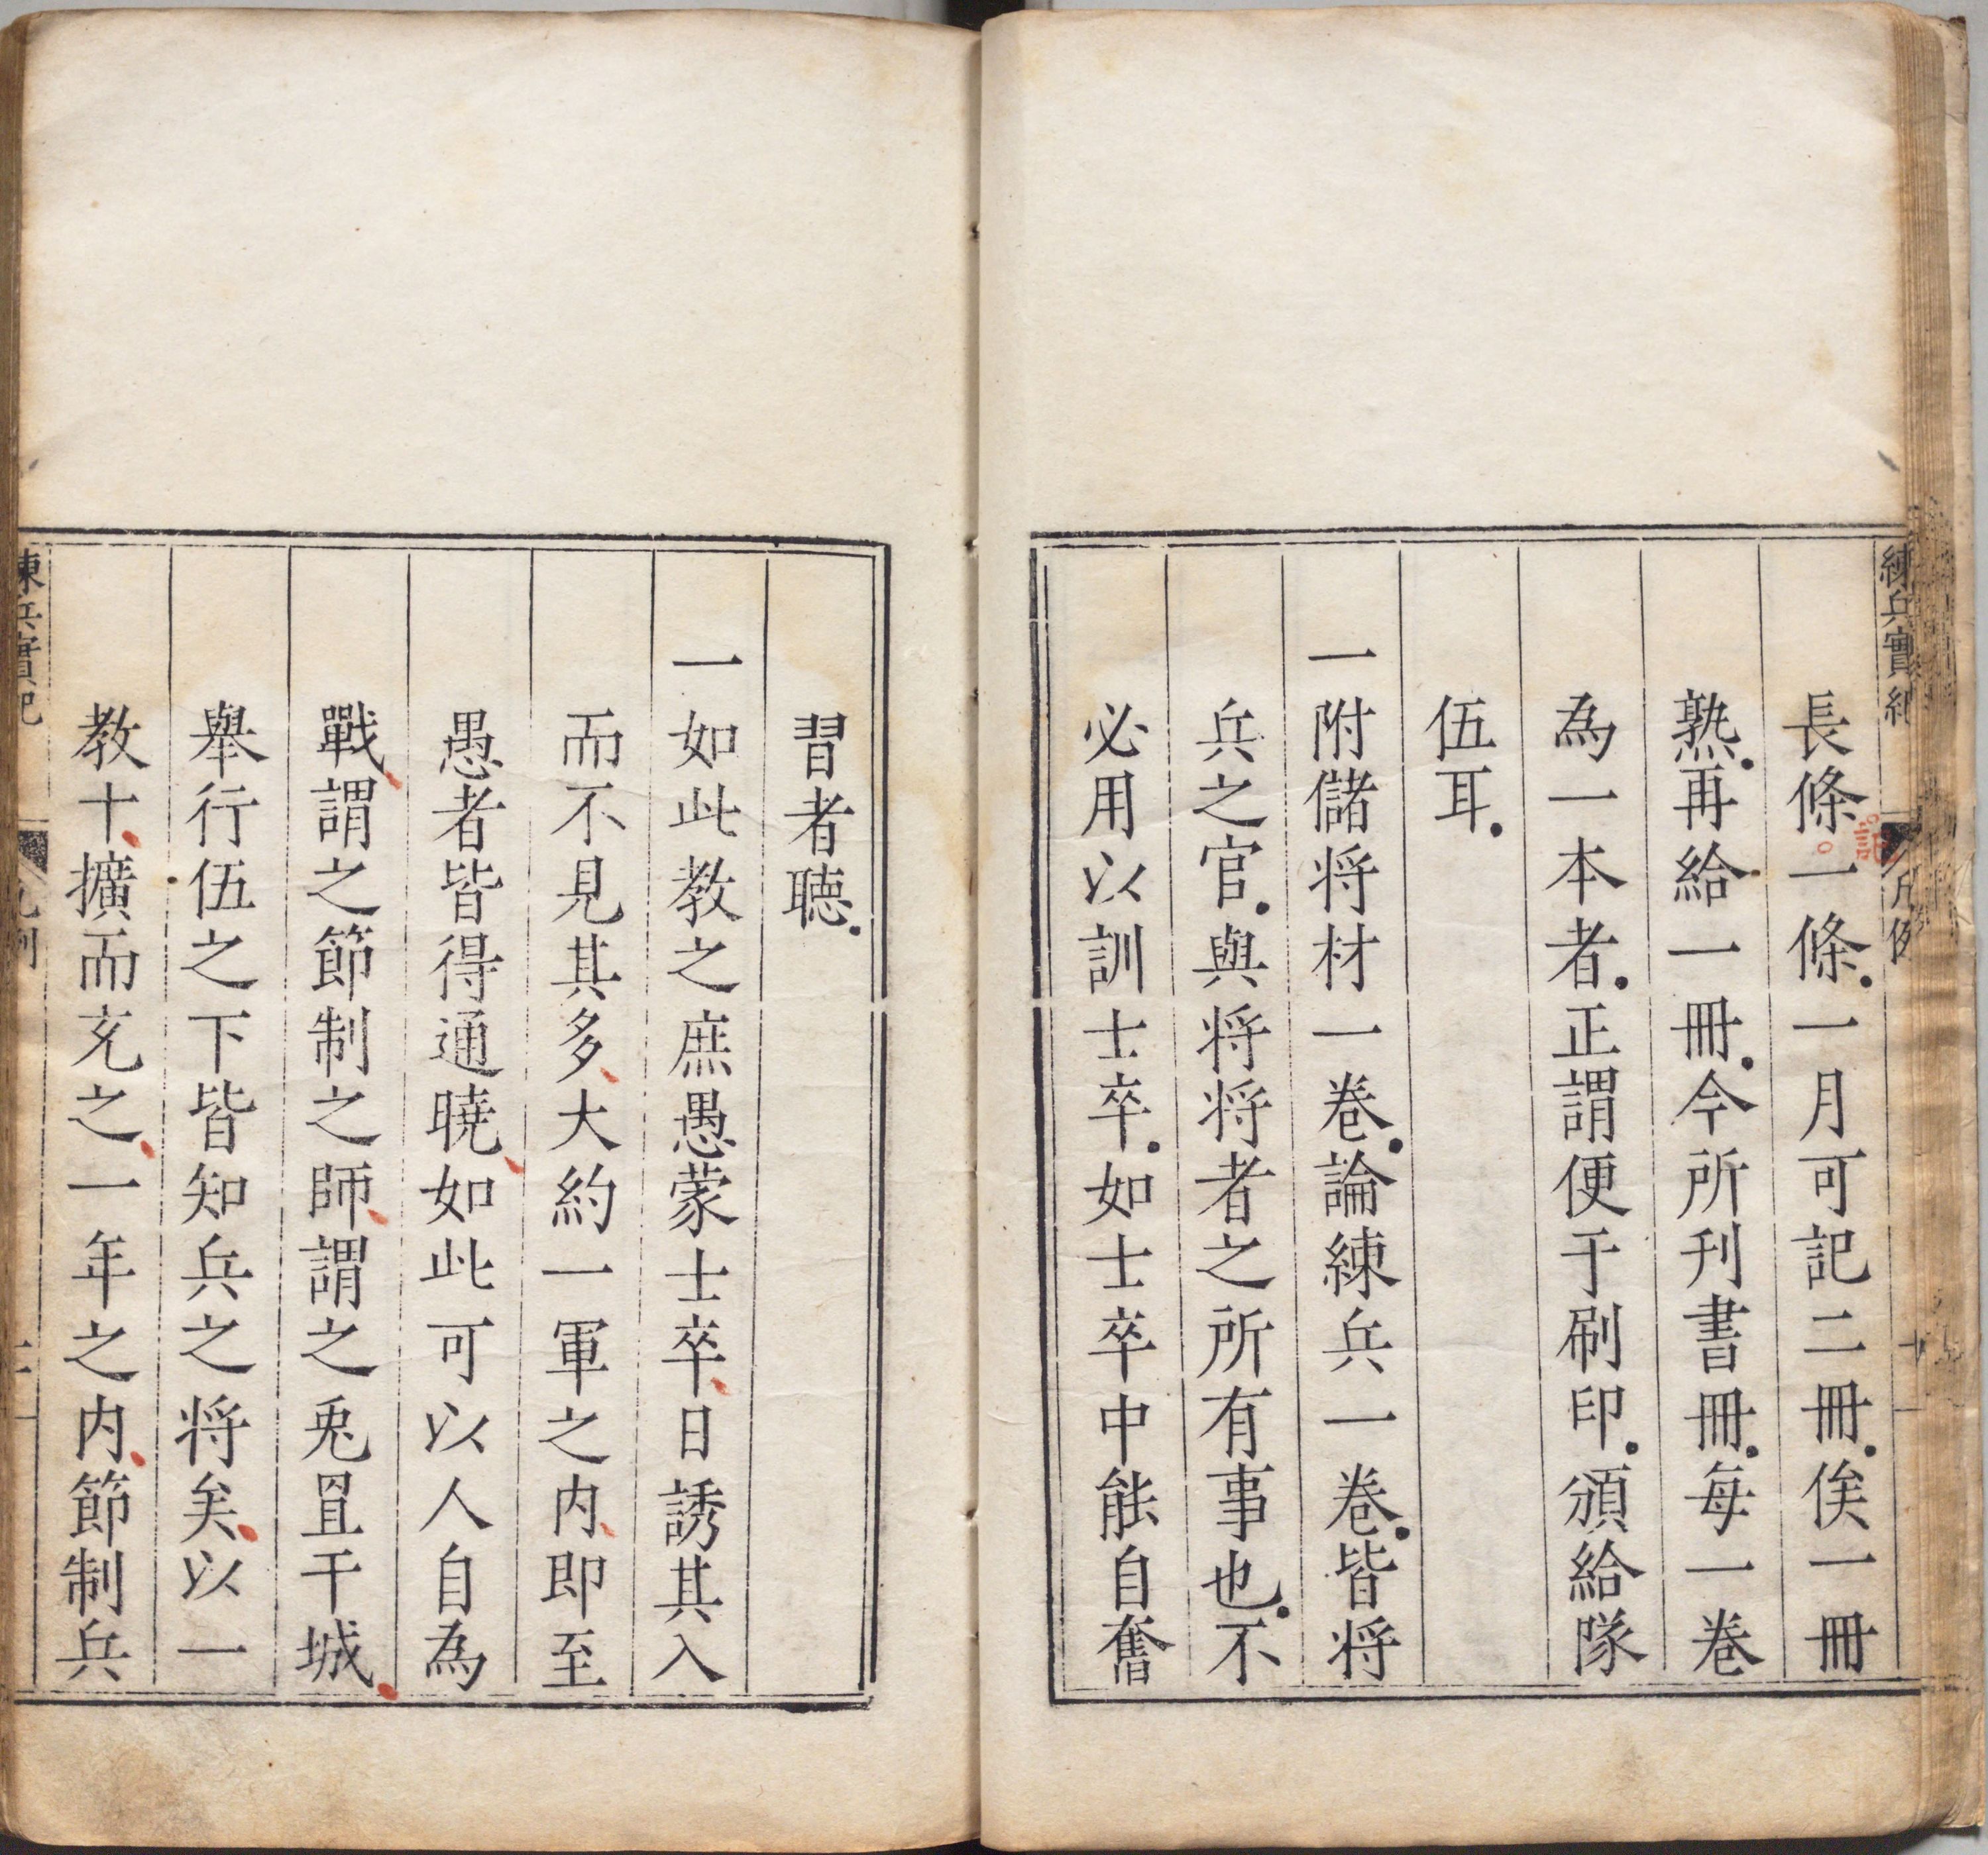 練兵實紀 凡例
長條一條一月可記二冊俟一冊
熟再給一冊今所刊書冊每一卷
為一本者正謂便于刷印頒給隊
伍耳
一附儲将材一卷論練兵一卷皆将
兵之官與将将者之所有事也不
必用以訓士卒如士卒中能自奮
習者聴
一如此教之庶愚蒙士卒日誘其入
而不見其多大約一軍之内即至
愚者皆得通曉如此可以人自為
戰謂之節制之師謂之兎罝干城
舉行伍之下皆知兵之将矣以一
教十擴而充之一年之内節制兵
練兵實紀 凡例